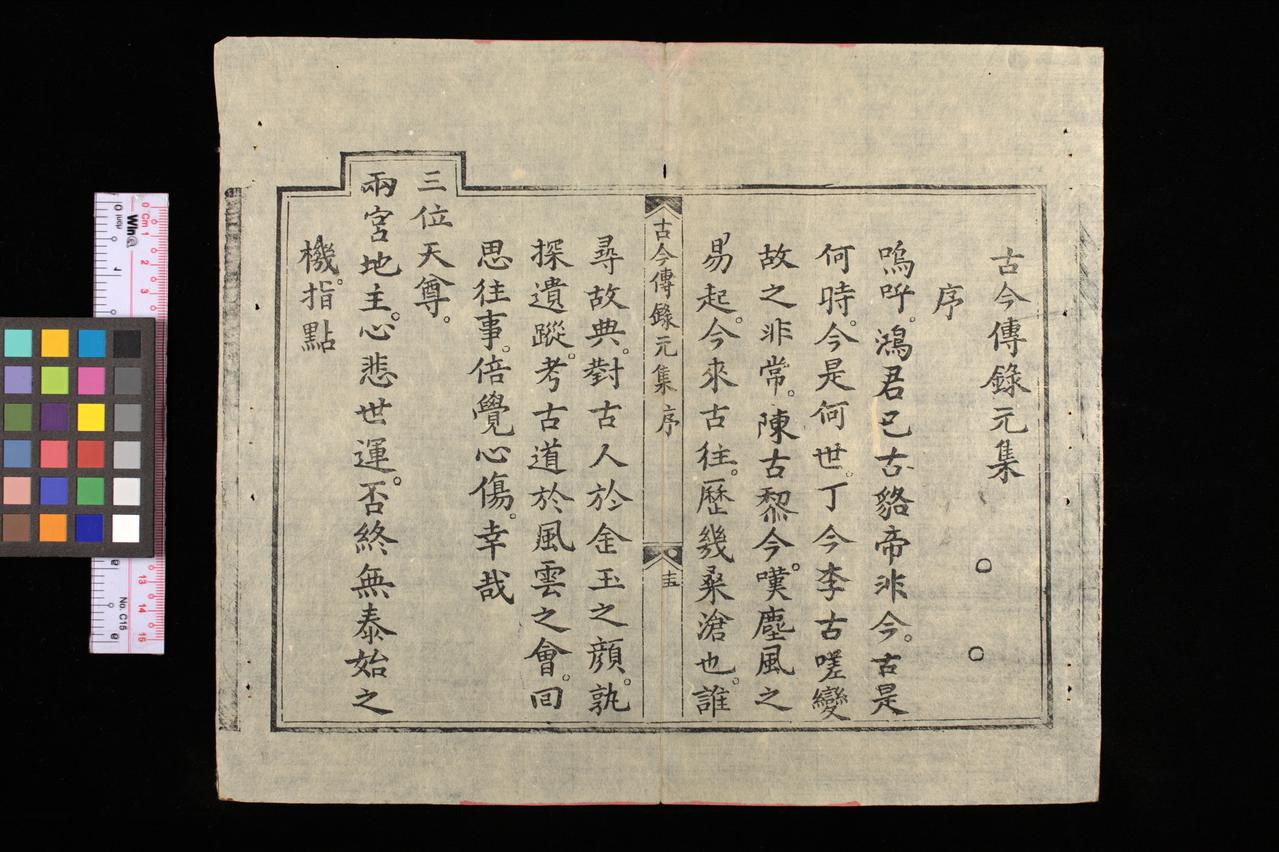 古今傳錄元集
序
嗚呼。鴻君已古。貉帝非今。古是
何時。今是何世。丁今李古嗟變
故之非常。陳古黎今。嘆塵風之
易起。今來古往。歷幾桑滄也。誰
古今傳錄元集 序
十五
尋故典。對古人於金玉之顔。孰
探遺蹤。考古道於風雲之會。回
思往事。倍覺心傷。幸哉
三位天尊。
兩宮地主。心悲世運。否終無泰始之
機。指點